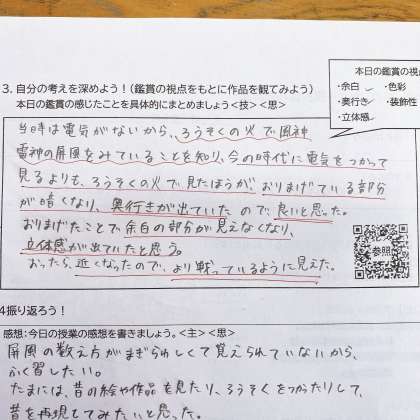 3. 自分の考えを深めよう！(鑑賞の視点をもとに作品を観てみよう)
本日の鑑賞の感じたことを具体的にまとめましょう<技><思>
本日の鑑賞の視
・余白 ・色彩
・奥行き ・装飾性
・立体感
当時は電気がないから、ろうそくの火で風神
雷神の屏風をみていることを知り、今の時代に電気をつかって
見るよりも、ろうそくの火で見たほうが、おりまげている部分
が暗くなり、奥行きが出ていたので、良いと思った。
おりまげたことで余白の部分が見えなくなり、
立体感が出ていたと思う。
おったら、近くなったので、より戦っているように見えた。
参照
4振り返ろう！
感想：今日の授業の感想を書きましょう。<主><思>
屏風の数え方がまぎらわしくて覚えられていないから、
ふく習したい。
たまには、昔の絵や作品を見たり、ろうそくをつかったりして、
昔を再現してみたいと思った。